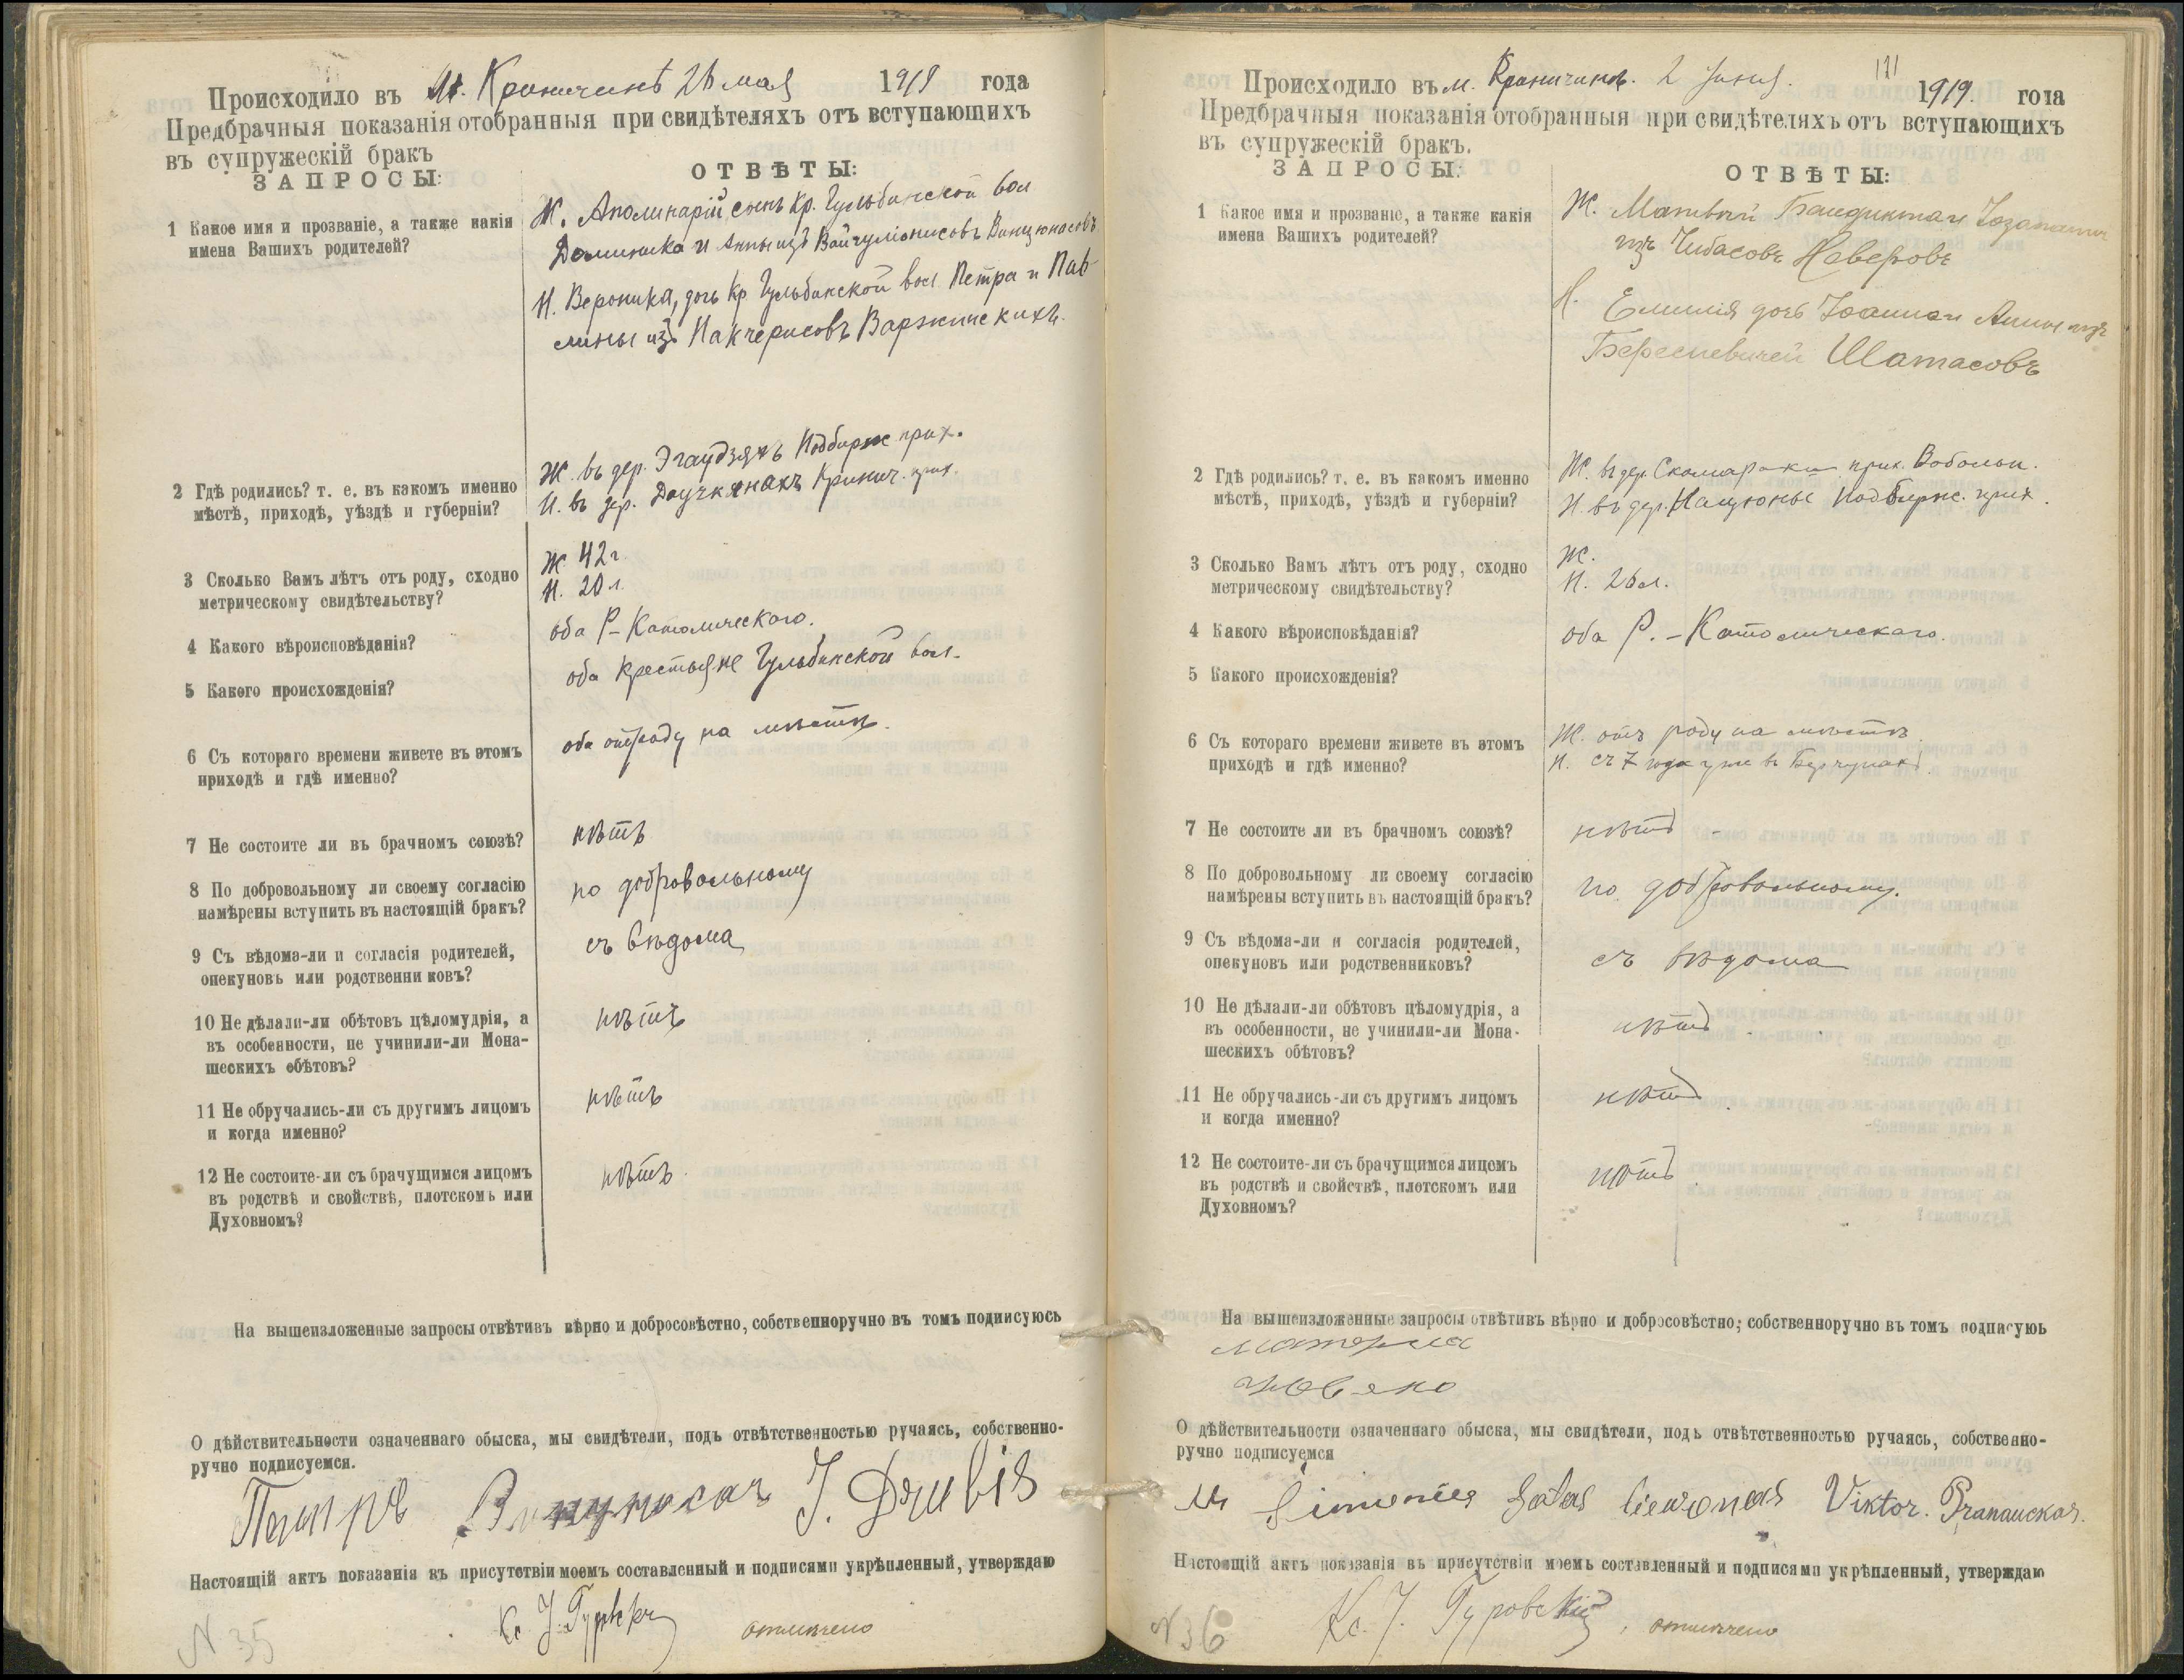 Происходило въ м. Криничинѣ 26 мая 1919 года
Предбрачныя показанія отобранныя при свидѣтеляхъ отъ вступающихъ
въ супружескій бракъ
ЗАПРОСЫ:
ОТВѢТЫ:
1 Какое имя и прозваніе, а также какія
имена Вашихъ родителей?
Ж. Аполинарій сынъ кр. Гульбинской вол
Доминика и Анны изъ Вайчуліонисовъ Винцюнасовъ
Н. Вероника, дочь кр Гульбинской вол Петра и Пав
лины изъ Накчерисовъ Варжинскихъ.
2 Гдѣ родились? т. е. въ какомъ именно
мѣстѣ, приходѣ, уѣздѣ и губерніи?
Ж. въ дер. Эгаудзяхъ Подбирже прих.
Н. въ дер. Даучкянахъ Кринич. прих.
3 Сколько Вамъ лѣтъ отъ роду, сходно
метрическому свидѣтельству?
Ж 42 г
Н. 20 л.
4 Какого вѣроисповѣданія?
оба Р-Католическаго.
5 Какого происхожденія?
оба крестьяне Гульбинской вол.
6 Съ котораго времени живете въ этомъ
приходѣ и гдѣ именно?
оба отъ роду на мѣстѣ.
7 Не состоите ли въ брачномъ союзѣ?
нѣтъ
8 По добровольному ли своему согласію
намѣрены вступить въ настоящій бракъ?
по добровольному
9 Съ вѣдома-ли и согласія родителей,
опекуновъ или родственниковъ?
съ вѣдома
10 Не дѣлали-ли обѣтовъ цѣломудрія, а
въ особенности, не учинили-ли Мона-
шескихъ обѣтовъ?
нѣтъ
11 Не обручались-ли съ другимъ лицомъ
и когда именно?
нѣтъ
12 Не состоите-ли съ брачущимся лицомъ
въ родствѣ и свойствѣ, плотскомъ или
Духовномъ?
нѣтъ.
На вышеизложенные запросы отвѣтивъ вѣрно и добросовѣстно, собственноручно въ томъ подписуюсь
О дѣйствительности означеннаго обыска, мы свидѣтели, подъ отвѣтственностью ручаясь, собственно-
ручно подписуемся.
Петръ J.
Настоящій актъ показанія въ присутствіи моемъ составленный и подписями укрѣпленный, утверждаю
Кс. J. Гуровскій отмѣчено
N 35
111
Происходило въ м. Криничинѣ. 2 Іюня. 1919. года
Предбрачныя показанія отобранныя при свидѣтеляхъ отъ вступающихъ
въ супружескій бракъ.
ЗАПРОСЫ:
ОТВѢТЫ:
1 Какое имя и прозваніе, а также какія
имена Вашихъ родителей?
Ж. Матвѣй
изъ Чибасовъ Неверовъ
Н. Емилія дочь Іоанна и Анны изъ
Шатасовъ
2 Гдѣ родились? т. е. въ какомъ именно
мѣстѣ, приходѣ, уѣздѣ и губерніи?
Ж. въ дер. прих. Вобольн.
Н. въ дер. Нацюны Подбирж. прих.
3 Сколько Вамъ лѣтъ отъ роду, сходно
метрическому свидѣтельству?
Ж.
Н. 26 л.
4 Какого вѣроисповѣданія?
оба Р.-Католическаго.
5 Какого происхожденія?
6 Съ котораго времени живете въ этомъ
приходѣ и гдѣ именно?
Ж. отъ роду на мѣстѣ.
Н. съ 7 года уже въ
7 Не состоите ли въ брачномъ союзѣ?
нѣтъ
8 По добровольному ли своему согласію
намѣрены вступить въ настоящій бракъ?
по добровольному.
9 Съ вѣдома-ли и согласія родителей,
опекуновъ или родственниковъ?
съ вѣдома
10 Не дѣлали-ли обѣтовъ цѣломудрія, а
въ особенности, не учинили-ли Мона-
шескихъ обѣтовъ?
нѣтъ.
11 Не обручались-ли съ другимъ лицомъ
и когда именно?
нѣтъ.
12 Не состоите-ли съ брачущимся лицомъ
въ родствѣ и свойствѣ, плотскомъ или
Духовномъ?
нѣтъ.
На вышеизложенные запросы отвѣтивъ вѣрно и добросовѣстно, собственноручно въ томъ подписуюь
О дѣйствительности означеннаго обыска, мы свидѣтели, подъ отвѣтственностью ручаясь, собственно-
ручно подписуемся
Viktor. Pranauckas.
Настоящій актъ показанія въ присутствіи моемъ составленный и подписями укрѣпленный, утверждаю
Кс. J. Гуровскій, отмѣчено
N 36